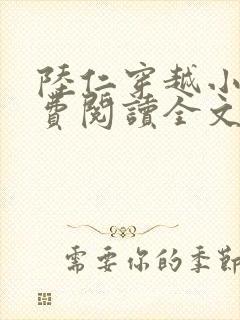 陸仁穿越小
費閱讀全文
需要你的季節